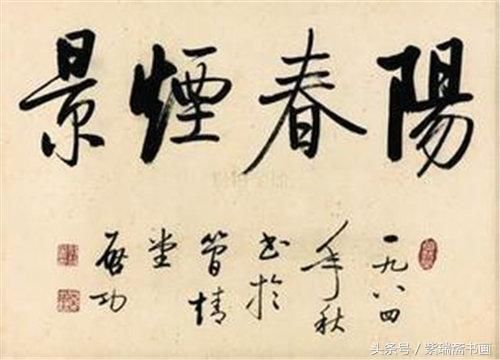 陽春煙景
一九八四
年秋
书於
簡靖
堂
启功
头条号/紫瑞斋书画